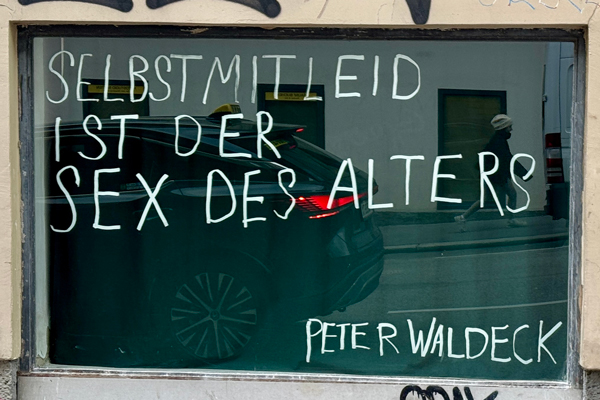 SELBSTMITLEID
IST DER
SEX DES ALTERS
PETER WALDECK